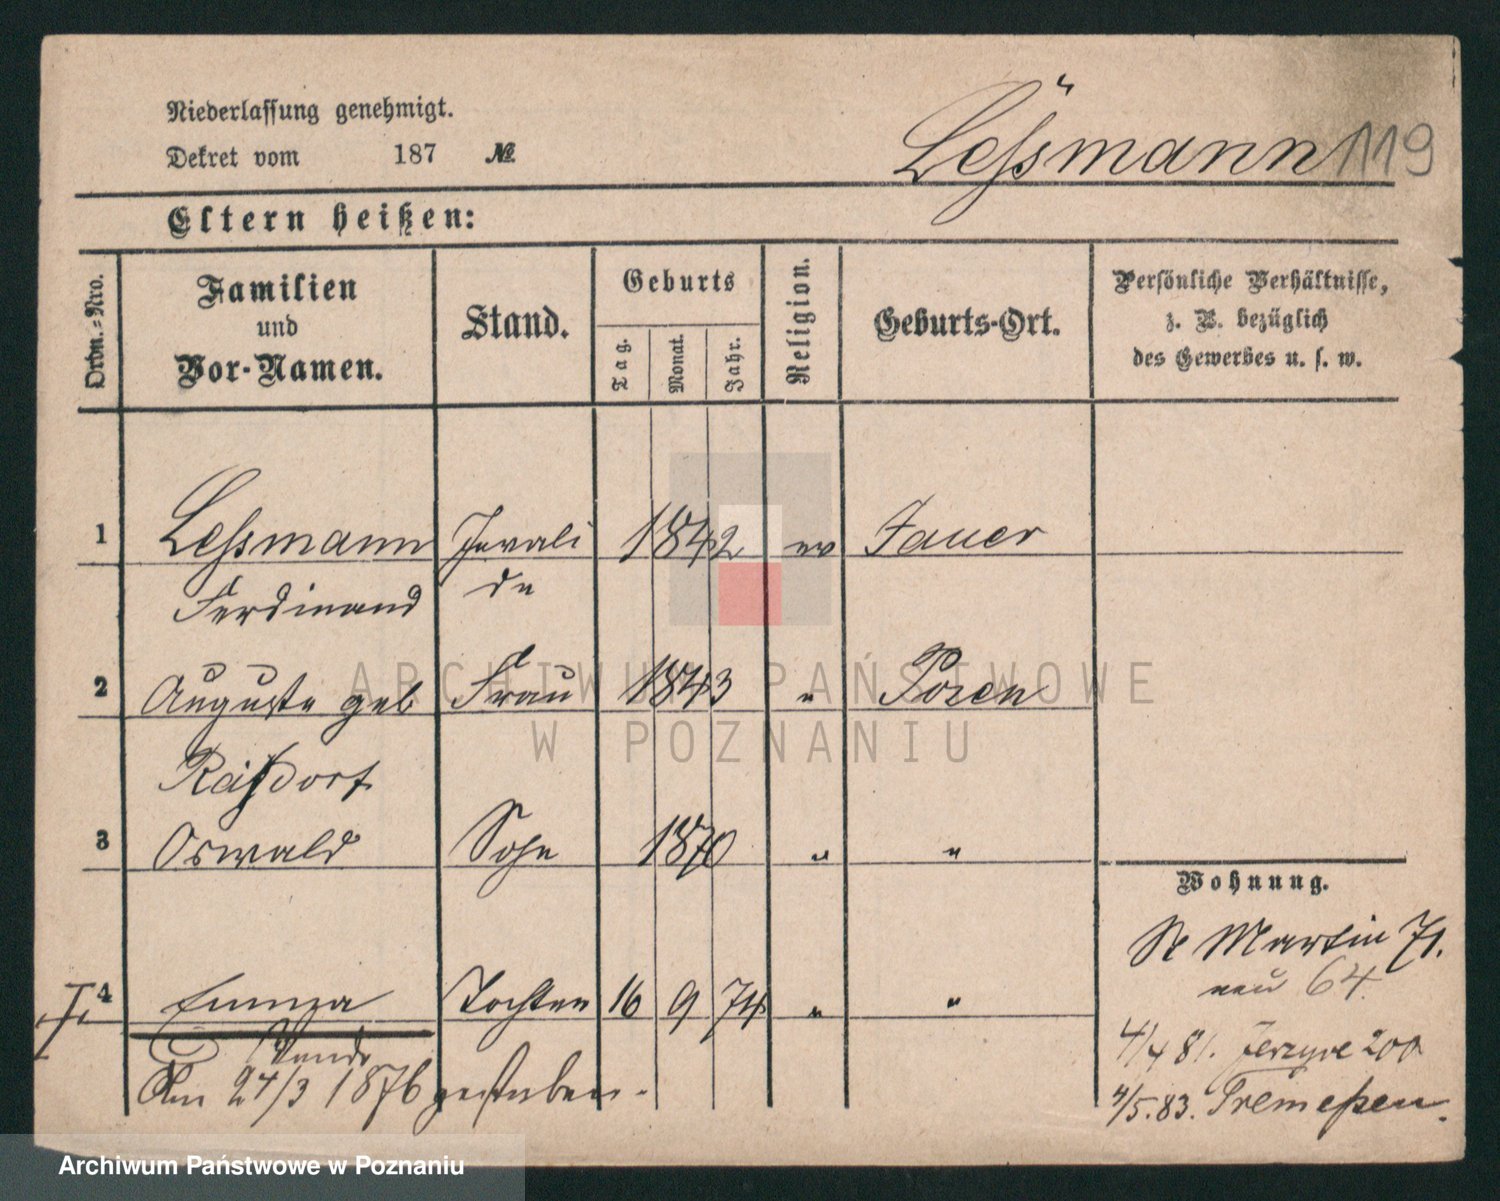 Niederlassung genehmigt.
Dekret vom 187 №
Leßmann 119
Eltern heißen:
Ordn.-Nro.
Familien
und
Vor-Namen.
Stand.
Geburts
Tag.
Monat.
Jahr.
Religion.
Geburts-Ort.
Persönliche Verhältnisse,
z. B. bezüglich
des Gewerbes u. s. w.
1 Leßmann Invali 1842 ev Jauer
Ferdinand de
2 Auguste geb Frau 1843 " Posen
Raißdorf
3 Oswald Sohn 1870 " "
Wohnung.
St Martin 71.
neu 64.
4 Emma Tochter 16 9 74 " "
4/4 81. Jerzyce 200
Am 24/3 1876 gestorben.
4/5. 83. Tremeßen.
ARCHIWUM PAŃSTWOWE
W POZNANIU
Archiwum Państwowe w Poznaniu